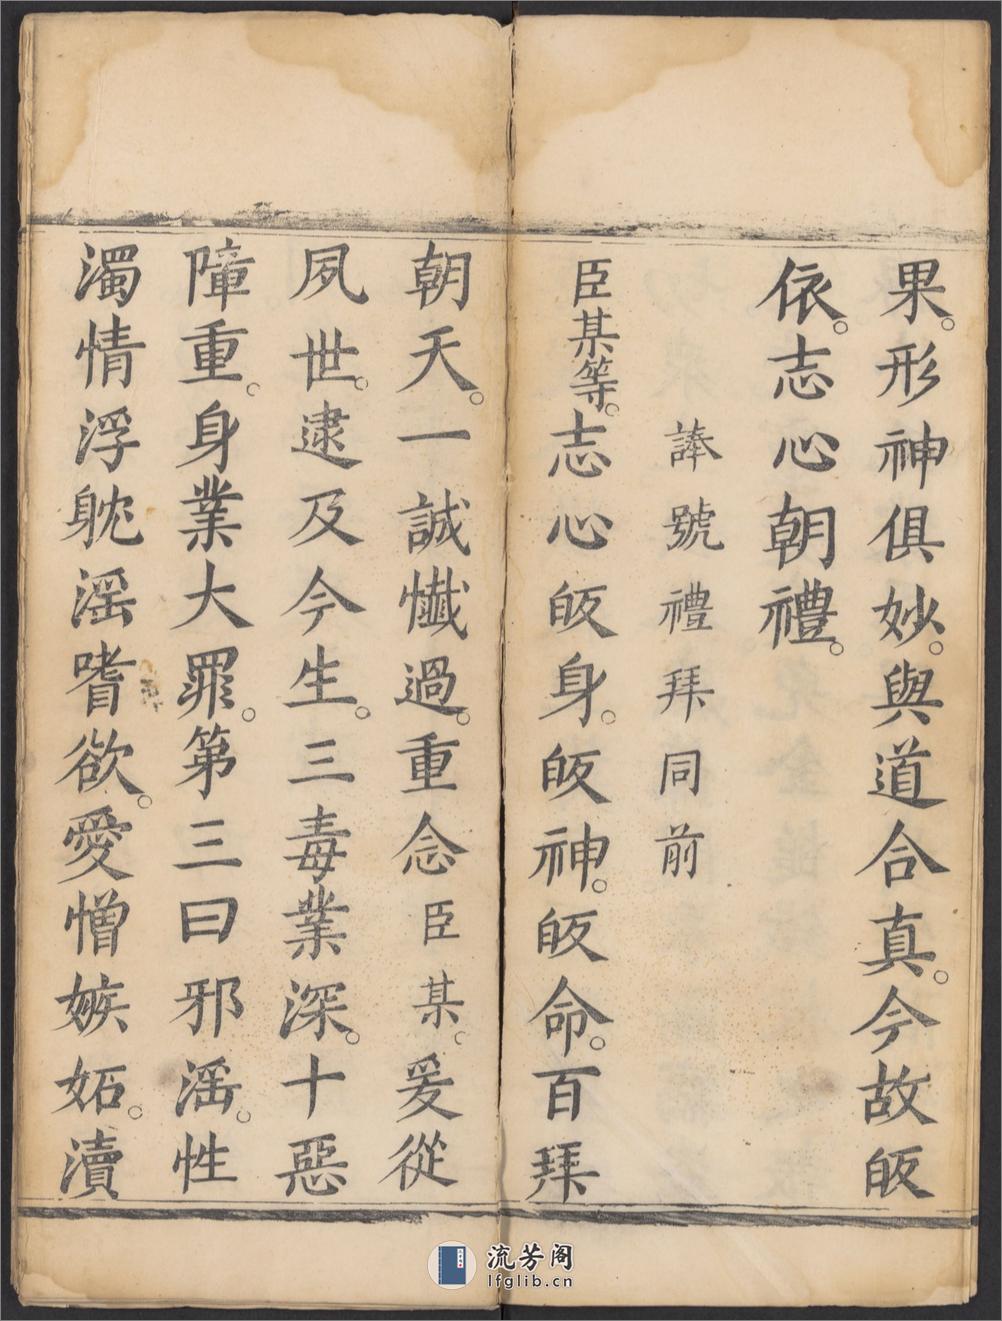 果。形神俱妙。與道合真。今故皈
依。志心朝禮。
諱號禮拜同前
臣某等。志心皈身。皈神。皈命。百拜
朝天。一誠懺過。重念臣某。爰從
夙世。逮及今生。三毒業深。十惡
障重。身業大罪。第三曰邪滛。性
濁情浮。躭滛嗜欲。愛憎嫉妬。瀆
流芳阁
lfglib.cn